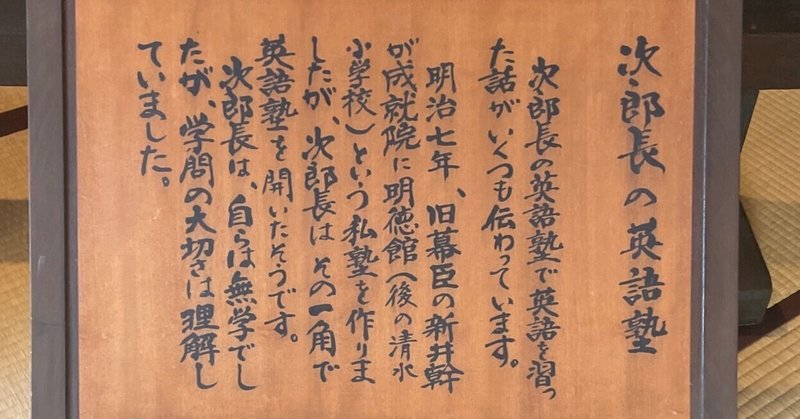 次郎長の英語塾
次郎長の英語塾で英語を習っ
た話がいくつも伝わっています。
明治七年、旧幕臣の新井幹
が成就院に明徳館（後の清水
小学校）という私塾を作りま
したが、次郎長はその一角で
英語塾を開いたそうです。
次郎長は、自らは無学でし
たが、学問の大切さは理解し
ていました。